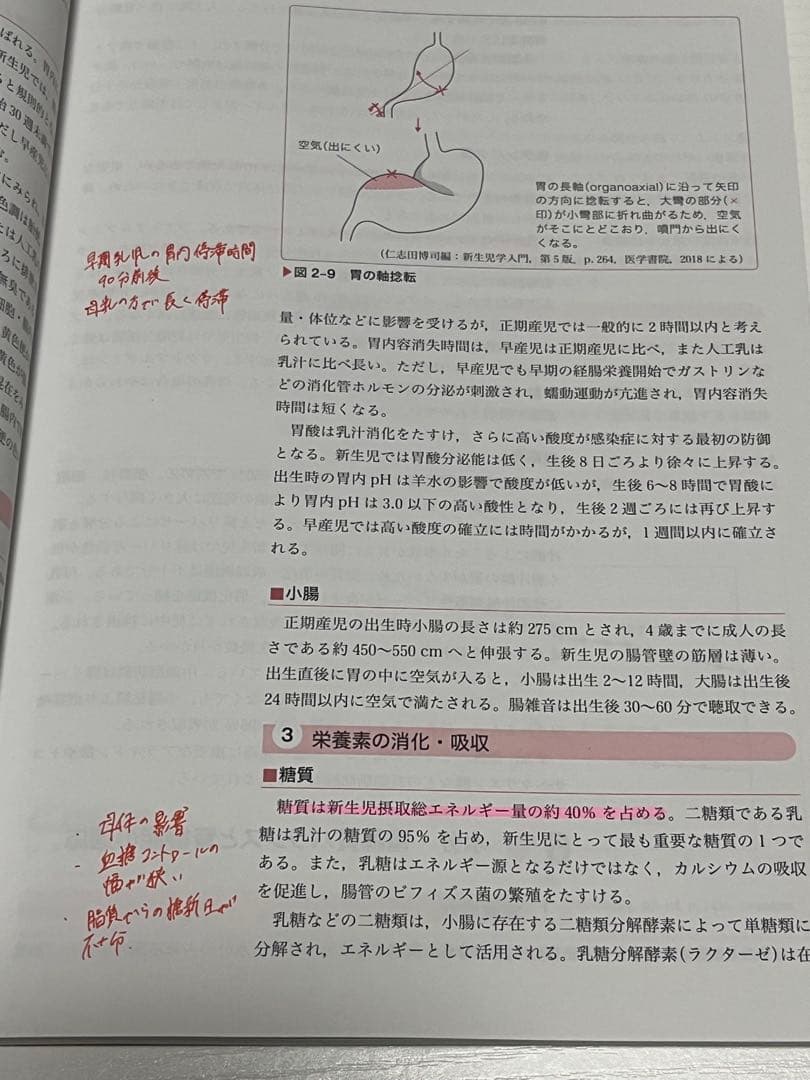 空気（出にくい）
胃の長軸（organoaxial）に沿って矢印
の方向に捻転すると，大彎の部分（×
印）が小彎部に折れ曲がるため，空気
がそこにとどこおり，噴門から出にく
くなる。
（仁志田博司編：新生児学入門，第5版，p.264，医学書院，2018による）
▶図2-9 胃の軸捻転
早期乳児の胃内停滞時間
90分前後
母乳の方が長く停滞
量・体位などに影響を受けるが，正期産児では一般的に2時間以内と考え
られている。胃内容消失時間は，早産児は正期産児に比べ，また人工乳は
乳汁に比べ長い。ただし，早産児でも早期の経腸栄養開始でガストリンな
どの消化管ホルモンの分泌が刺激され，蠕動運動が亢進され，胃内容消失
時間は短くなる。
胃酸は乳汁消化をたすけ，さらに高い酸度が感染症に対する最初の防御
となる。新生児では胃酸分泌能は低く，生後8日ごろより徐々に上昇する。
出生時の胃内pHは羊水の影響で酸度が低いが，生後6〜8時間で胃酸に
より胃内pHは3.0以下の高い酸性となり，生後2週ごろには再び上昇す
る。早産児では高い酸度の確立には時間がかかるが，1週間以内に確立さ
れる。
■小腸
正期産児の出生時小腸の長さは約275 cmとされ，4歳までに成人の長
さである約450〜550 cmへと伸張する。新生児の腸管壁の筋層は薄い。
出生直後に胃の中に空気が入ると，小腸は出生2〜12時間，大腸は出生後
24時間以内に空気で満たされる。腸雑音は出生後30〜60分で聴取できる。
3 栄養素の消化・吸収
■糖質
糖質は新生児摂取総エネルギー量の約40％を占める。二糖類である乳
糖は乳汁の糖質の95％を占め，新生児にとって最も重要な糖質の1つで
ある。また，乳糖はエネルギー源となるだけではなく，カルシウムの吸収
を促進し，腸管のビフィズス菌の繁殖をたすける。
乳糖などの二糖類は，小腸に存在する二糖類分解酵素によって単糖類に
分解され，エネルギーとして活用される。乳糖分解酵素（ラクターゼ）は在
・母体の影響
・血糖コントロールの
幅が狭い
・脂質からの糖新生が